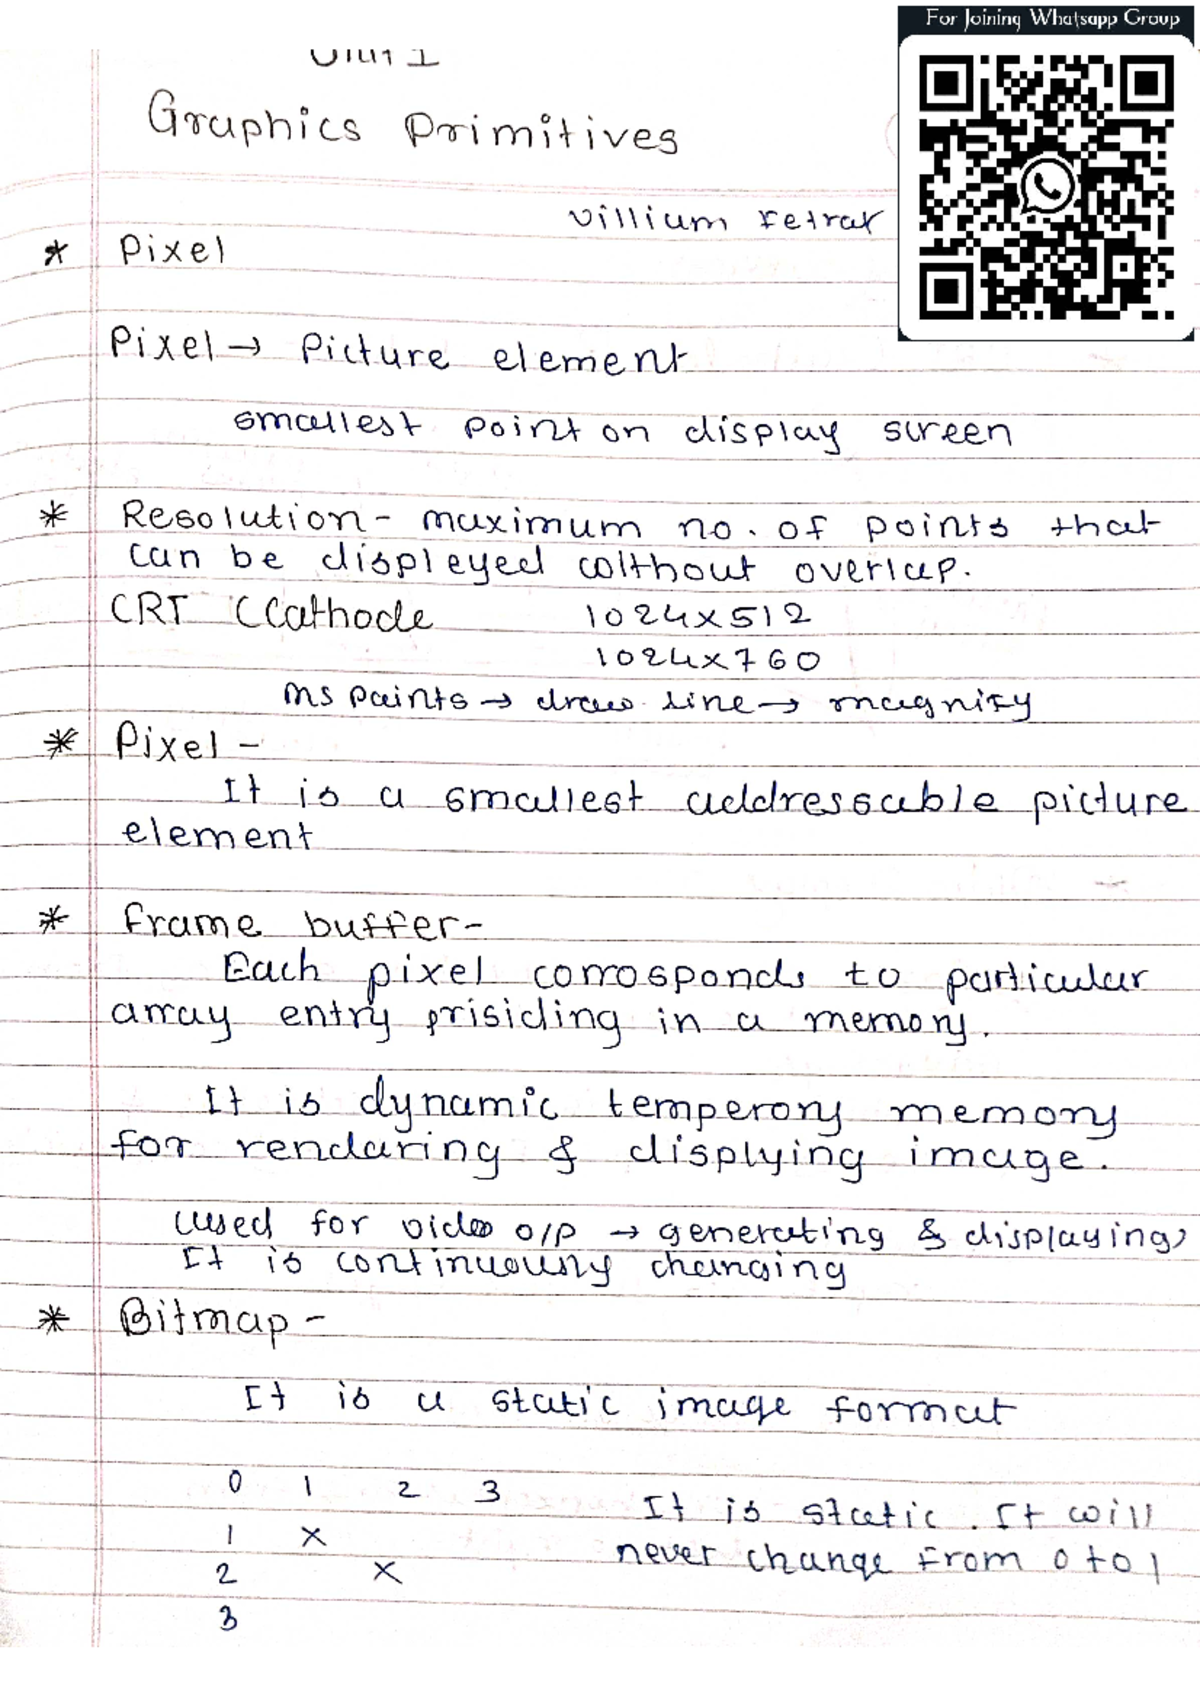 For Joining Whatsapp Group
Unit 1
Graphics Primitives
villium Fetrat
* Pixel
Pixel → Picture element
smallest point on display screen
* Resolution - maximum no. of points that
can be displeyed without overlap.
CRT (Cathode 1024x512
1024x760
ms paints → draw line → magnify
* Pixel -
It is a smallest addressable picture
element
* frame buffer-
Each pixel corrosponds to particular
array entry prisiding in a memory.
It is dynamic temperory memory
for rendaring & displying image.
used for video o/p → generating & displaying,
It is continuously changing
* Bitmap -
It is a static image format
0 1 2 3
It is static. It will
1 x
never change from 0 to 1
2 x
3